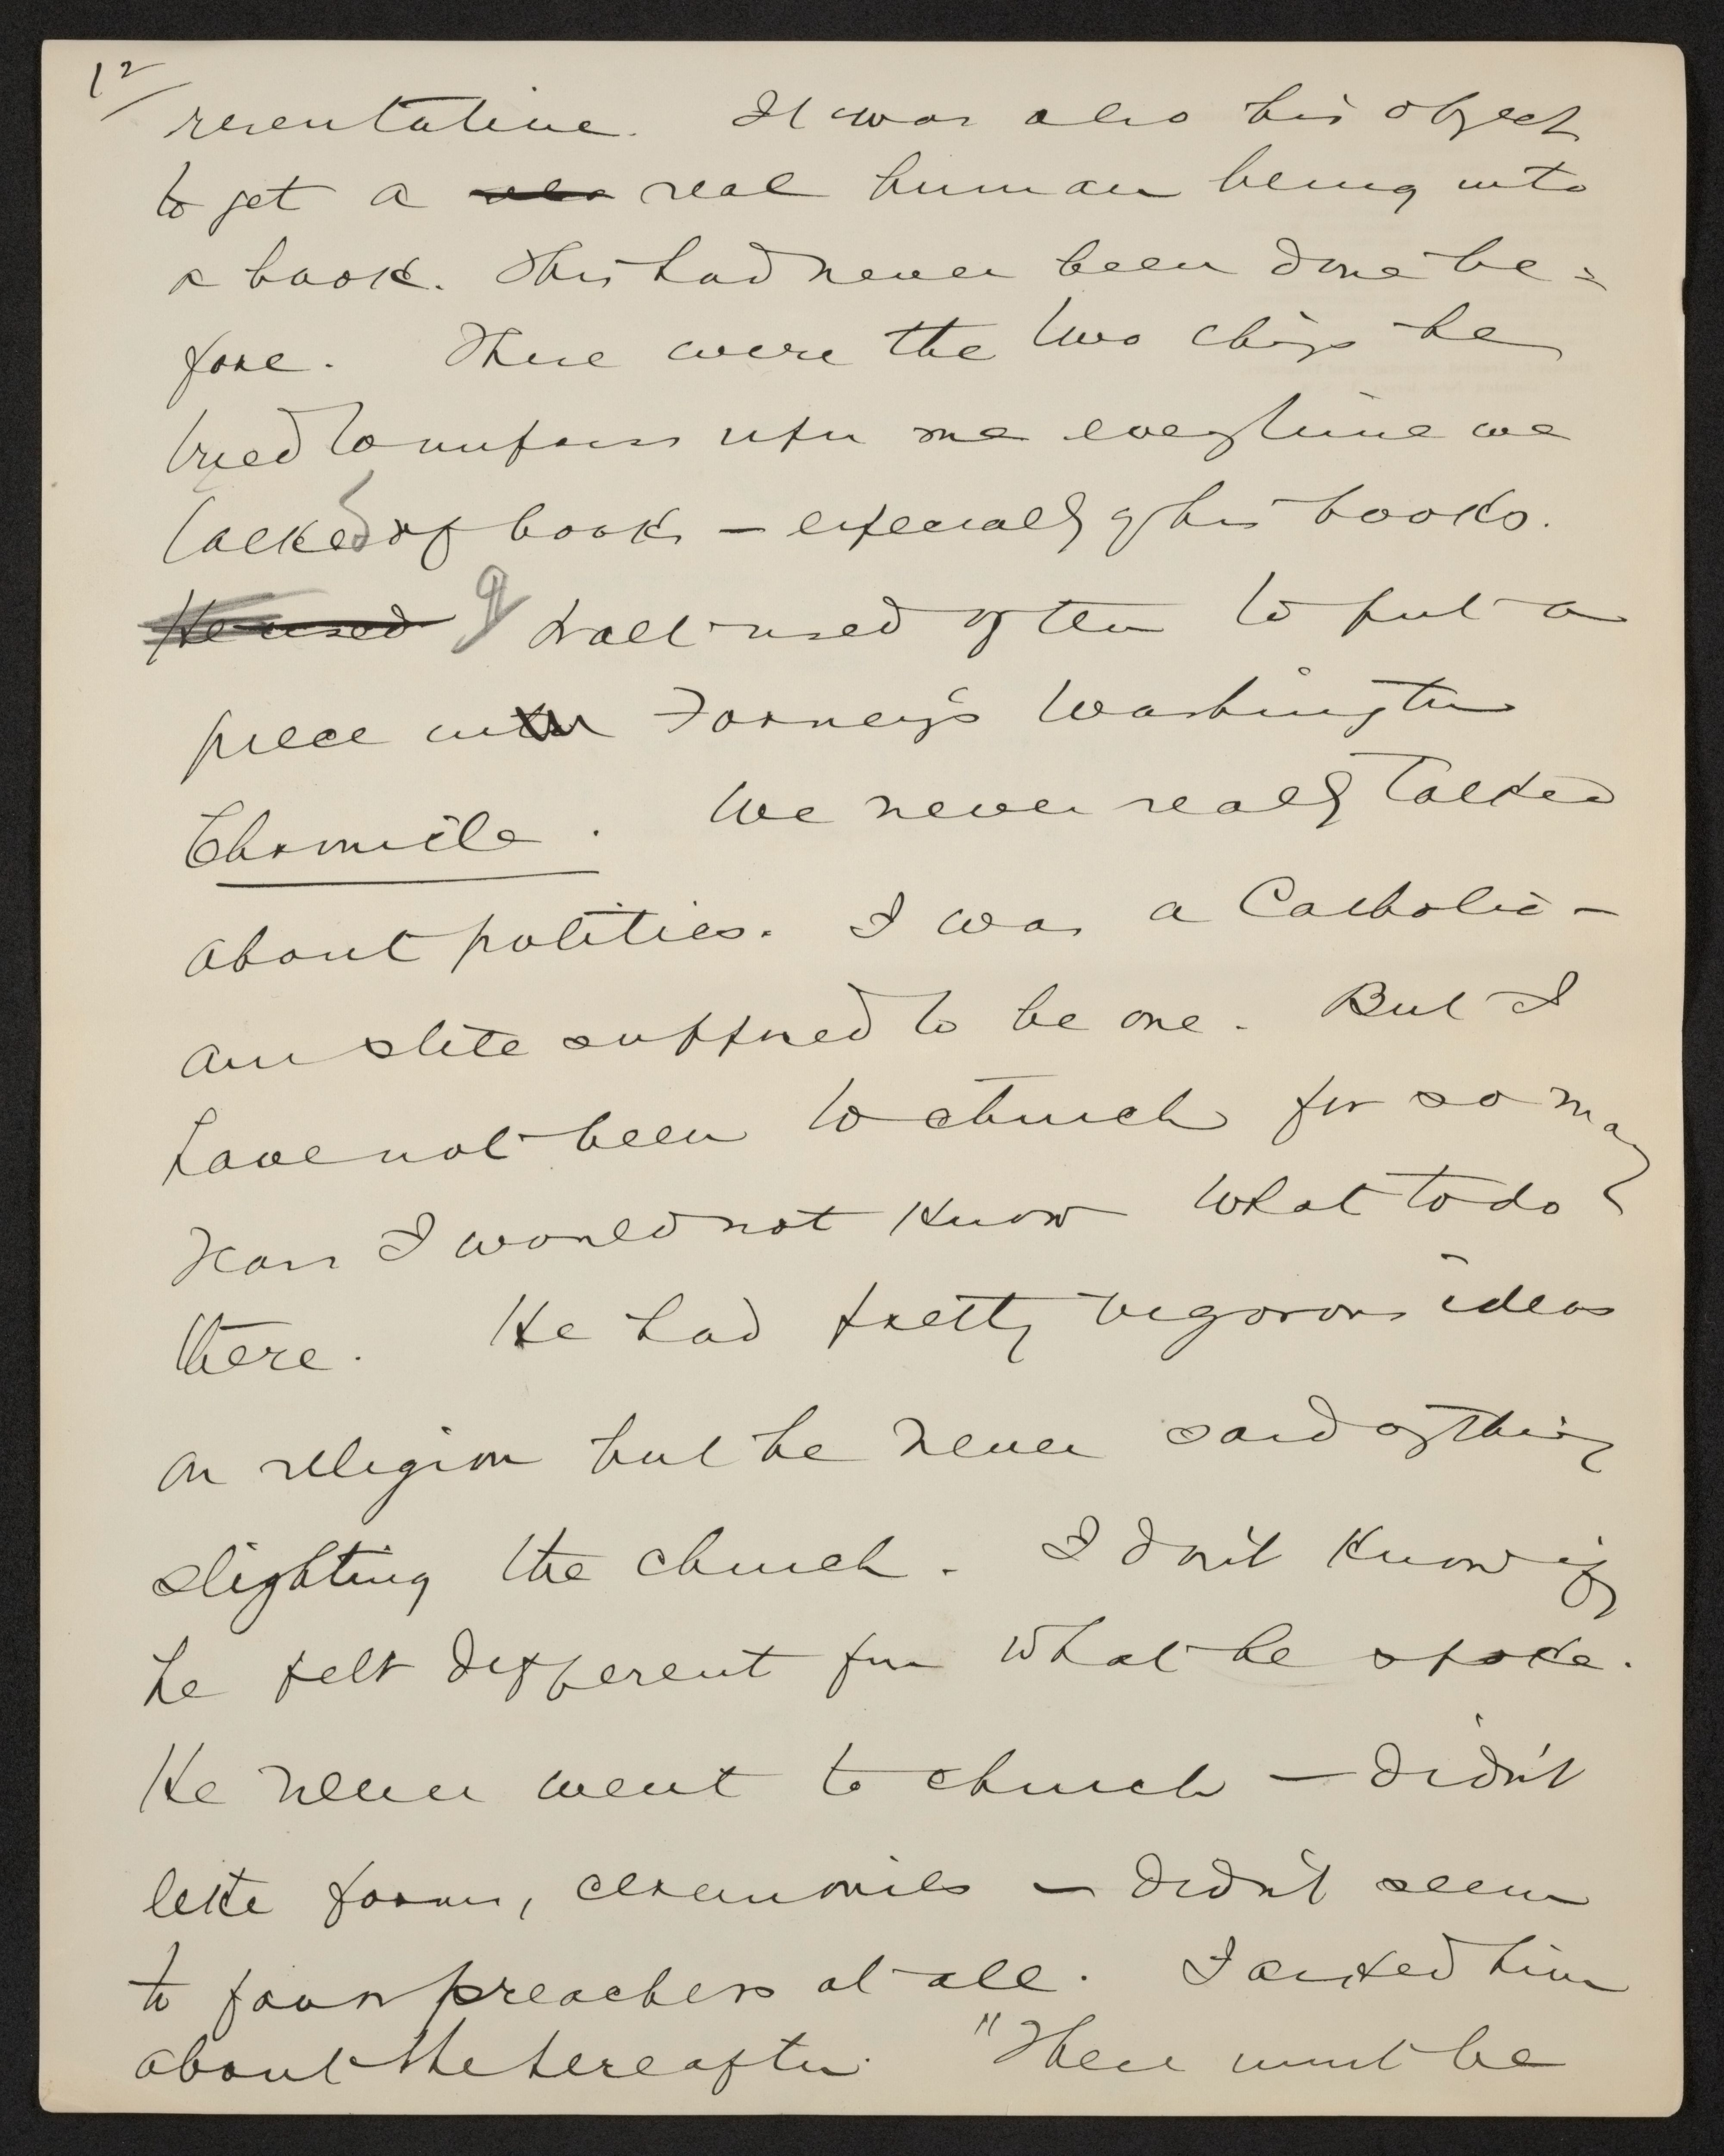 12/
resentative. It was also his object
to get a real human being into
a book. This had never been done be=
fore. These were the two chips he
tried to impress upon me every time we
talked of books – especially of his books.
He used Walt used often to put a
piece into Forney's Washington
Chronicle. We never really talked
about politics. I was a Catholic –
am still supposed to be one. But I
have not been to church for so many
years I would not know what to do
there. He had pretty vigorous ideas
on religion but he never said anything
slighting the church. I don't know if
he felt different from what he spoke.
He never went to church – didn't
like forms, ceremonies – didn't seem
to favor preachers at all. I asked him
about the hereafter. "There must be